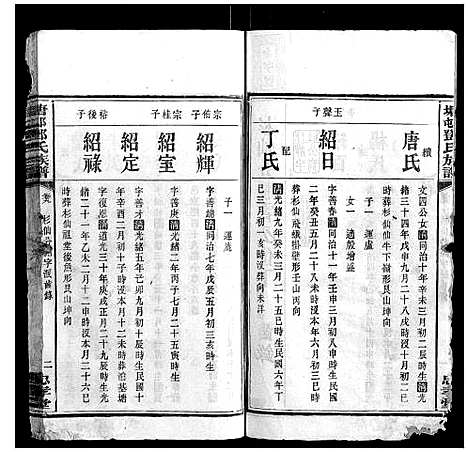 唐氏
續
文四公女清同治十年辛未三月初二辰時生清光
緒三十四年戊申九月二十八戌時沒十月初三己
時葬杉仙仙牛下嶺形艮山坤向
子一 運盧
女一 適殷增遂
王聲子
紹日
字善春清同治十一年壬申三月初八申時生民國
二年癸丑五月二十八未時沒本年六月初三巳時
葬杉仙飛蛾掛壁形壬山丙向
配
丁氏
清光緒九年癸未三月二十五巳時生民國六年丁
巳三月初一亥時沒葬向未詳
子一 運處
宗怡子
紹輝
字善繞清同治七年戊辰五月初三亥時生
宗桂子
紹室
字善庚清光緒二年丙子七月二十五寅時生
紹定
字善道清光緒五年己卯九月初十辰時生民國十
年辛酉二月初十子時沒本月十二未時葬泊基塘
裕後子
紹祿
字復恩清道光三十年庚戌正月二十九辰時生光
緒二十一年乙未二月十二申時沒本月二十六巳
時葬杉仙獄堂後魚形艮山坤向
鄧氏族譜
二